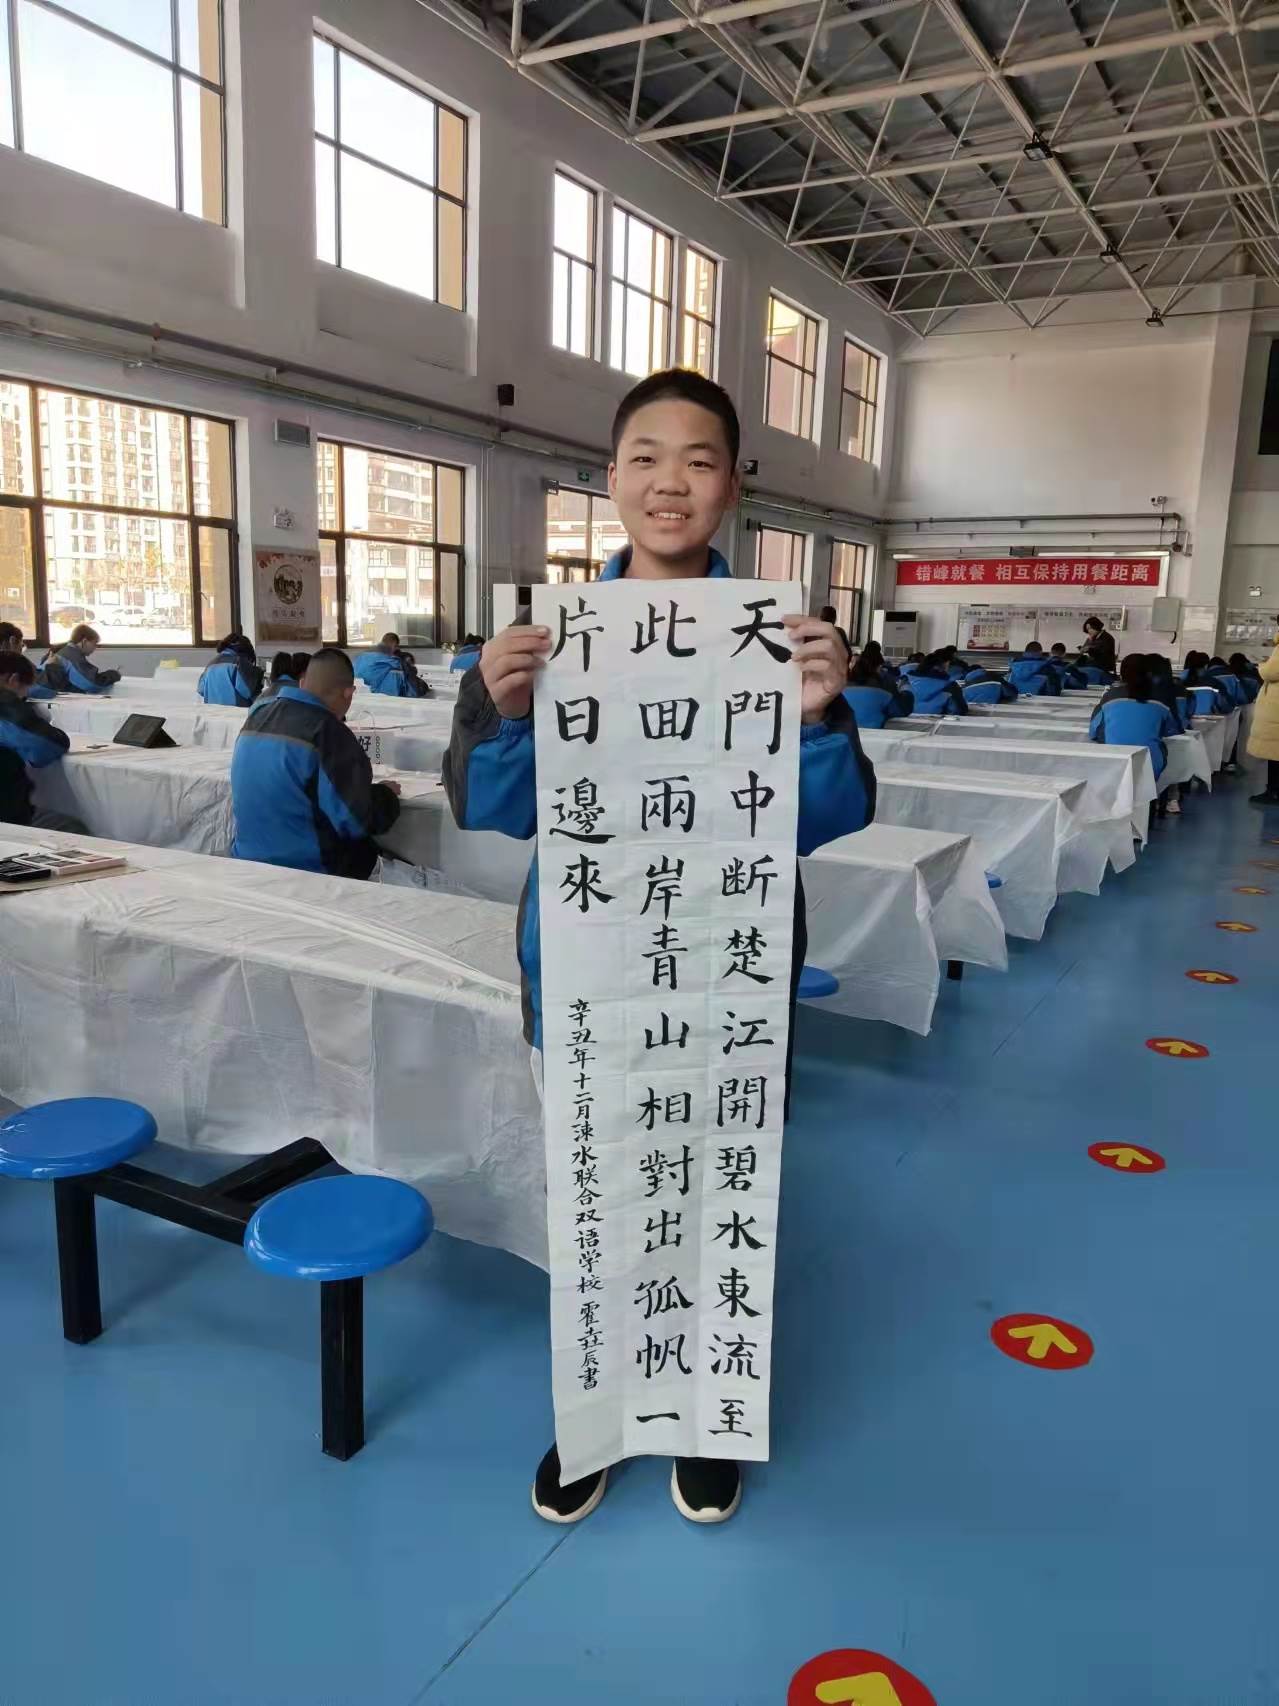 天門中断楚江開碧水東流至
此回兩岸青山相對出孤帆一
片日邊來
辛丑年十二月涑水联合双语学校 霍垚辰書
错峰就餐 相互保持用餐距离
好